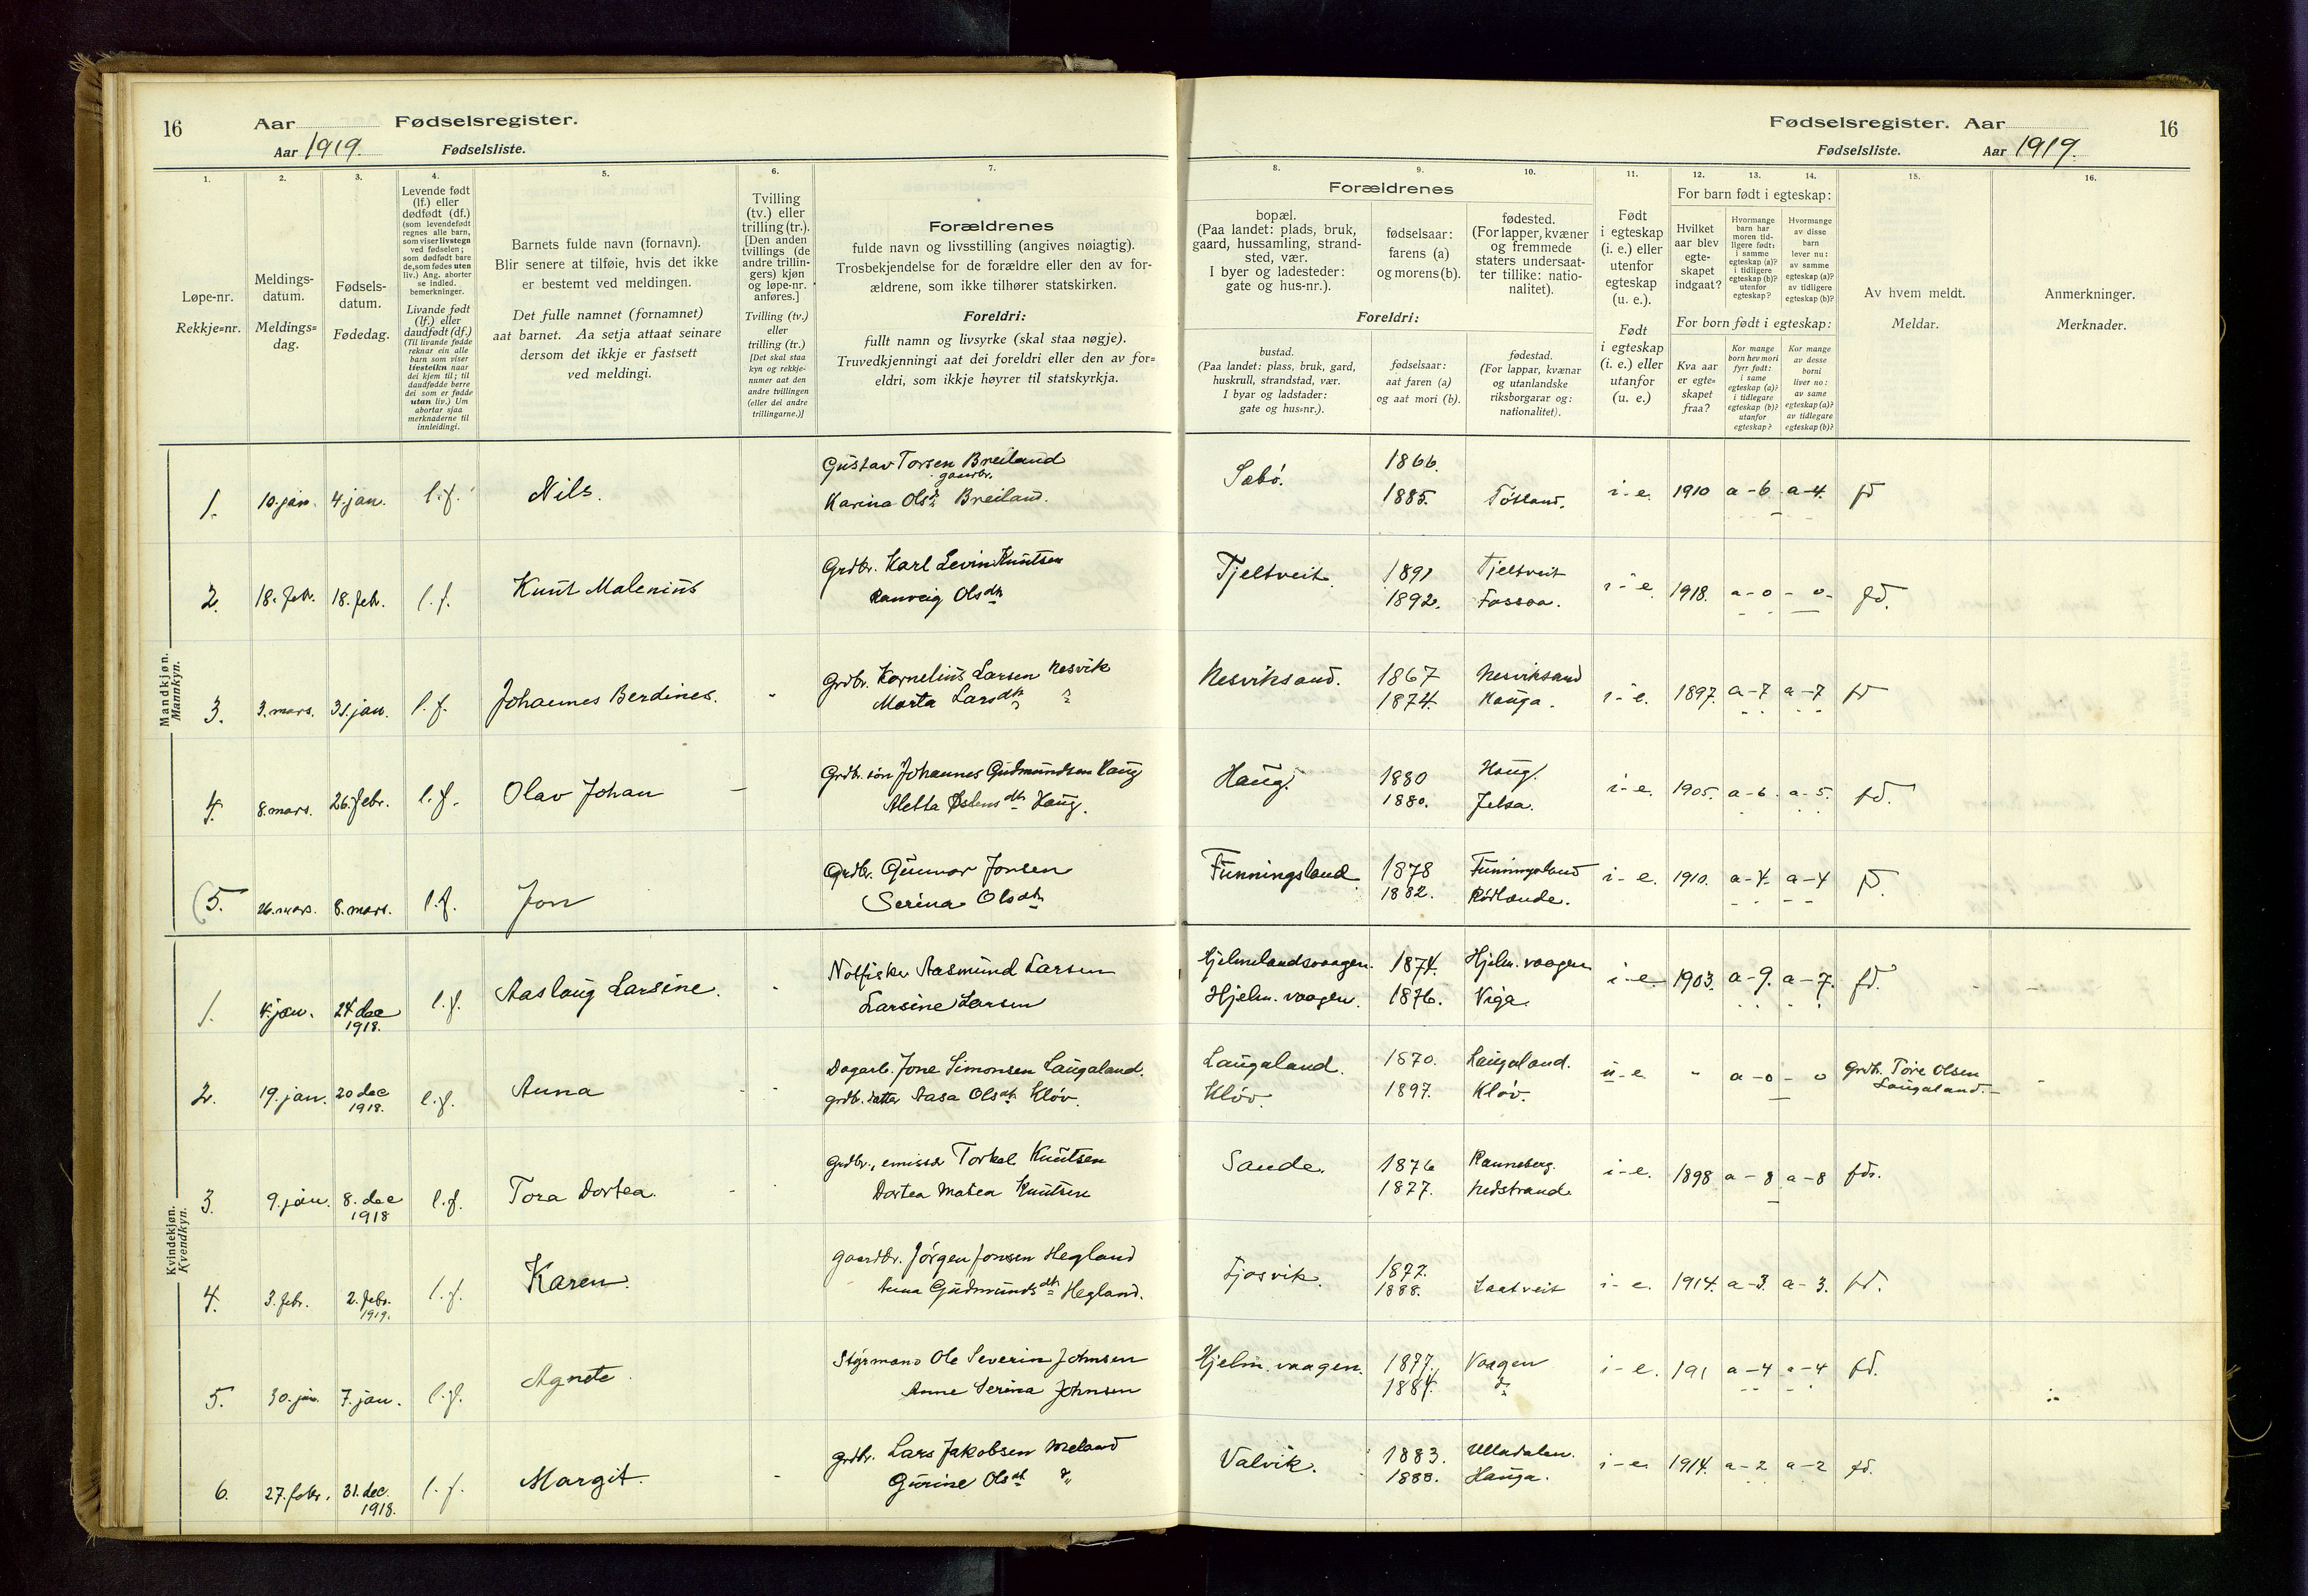 16 Aar Fødselsregister.
Aar 1919. Fødselsliste.
Fødselsregister. Aar 16
Fødselsliste. Aar 1919.
1.
Løpe-nr.
Rekkje=nr.
2.
Meldings-
datum.
Meldings=
dag.
3.
Fødsels-
datum.
Fødedag.
4.
Levende født
(lf.) eller
dødfødt (df.)
(som levendefødt
regnes alle barn,
som viser livstegn
ved fødselen;
som dødfødt bare
de, som fødes uten
liv.) Ang. aborter
se indled.
bemerkninger.
Livande født
(lf.) eller
daudfødt (df.)
(Til livande fødde
reknar ein alle
barn som viser
livsteikn naar
dei kjem til; til
daudfødde berre
dei som er fødde
utan liv.) Um
abortar sjaa
merknaderne til
innleidingi.
5.
Barnets fulde navn (fornavn).
Blir senere at tilføie, hvis det ikke
er bestemt ved meldingen.
Det fulle namnet (fornamnet)
aat barnet. Aa setja attaat seinare
dersom det ikkje er fastsett
ved meldingi.
6.
Tvilling
(tv.) eller
trilling (tr.).
[Den anden
tvillings (de
andre trillin-
gers) kjøn
og løpe-nr.
anføres.]
Tvilling (tv.)
eller
trilling (tr.)
[Det skal staa
kyn og rekkje-
numer aat den
andre tvillingen
(eller dei andre
trillingarne.)]
7.
Forældrenes
fulde navn og livsstilling (angives nøiagtig).
Trosbekjendelse for de forældre eller den av for-
ældrene, som ikke tilhører statskirken.
Foreldri:
fullt namn og livsyrke (skal staa nøgje).
Truvedkjenningi aat dei foreldri eller den av for=
eldri, som ikkje høyrer til statskyrkja.
8.
Forældrenes
bopæl.
(Paa landet: plads, bruk,
gaard, hussamling, strand-
sted, vær.
I byer og ladesteder:
gate og hus-nr.).
Foreldri:
bustad.
(Paa landet: plass, bruk, gard,
huskrull, strandstad, vær.
I byar og ladstader:
gate og hus=nr.).
9.
fødselsaar:
farens (a)
og morens (b).
fødselsaar:
aat faren (a)
og aat mori (b).
10.
fødested.
(For lapper, kvæner
og fremmede
staters undersaat-
ter tillike: natio-
nalitet).
fødestad.
(For lappar, kvænar
og utanlandske
riksborgarar og:
nationalitet).
11.
Født
i egteskap
(i. e.) eller
utenfor
egteskap
(u. e.).
Født
i egteskap
(i. e.) eller
utanfor
(u. e.)
12. 13. 14.
For barn født i egteskap:
Hvilket
aar blev
egte-
skapet
indgaat?
Hvormange
barn har
moren tid-
ligere født:
i samme
egteskap (a)?
i tidligere
egteskap (b)?
utenfor
egteskap?
Hvormange
av disse
barn
lever nu:
av samme
egteskap (a)?
av tidligere
egteskap (b)?
For born født i egteskap:
Kva aar
er egte=
skapet
fraa?
Kor mange
born hev mori
fyrr født:
i same
egteskap (a)?
i tidlegare
egteskap (b)?
utanfor
egteskap?
Kor mange
av desse
borni
liver no:
av same
egteskap (a)?
av tidlegare
egteskap (b)?
15.
Av hvem meldt.
Meldar.
16.
Anmerkninger.
Merknader.
Mandkjøn.
Mannkyn.
1. 10. jan. 4. jan. l.f. Nils. Gustav Torsen Breiland
gaardbr.
Karina Olsdt Breiland.
Sæbø. 1866.
1885. Tøtland. i-e. 1910 a-6 a-4. fd
2. 18. febr. 18. feb. l.f. Knut Malenius Grdbr. Karl Levin Knutsen
Ranveig Olsdtr
Tjeltveit. 1891 Tjeltveit
1892. Fossaa. i-e. 1918. a-0 - 0- fd.
3. 3. mars. 31. jan. l.f. Johannes Berdines. Grdbr. Kornelius Larsen Nesvik
Marta Larsdtr "
Nesviksand. 1867 Nesviksand
1874. Hauga. i-e. 1897. a-7 a-7 fd
4. 8. mars. 26. febr. l.f. Olav Johan Grdb. søn Johannes Gudmundsen Haug
Aletta Østensdtr Haug.
Haug. 1880 Haug.
1880. Jelsa. i-e. 1905. a-6 a-5. fd.
5. 26. mars. 8. mars. l.f. Jon Grdbr. Gunnar Jonsen
Serina Olsdtr
Funningsland. 1878 Funningsland
1882. Rødlande. i-e. 1910. a-4. a-4 fd.
Kvindekjøn.
Kvendkyn.
1. 4. jan. 24 dec
1918. l.f. Aaslaug Larsine. Notfisker Aasmund Larsen
Larsine Larsen
Hjelmelandsvaagen. 1874. Hjelm. vaagen
Hjelm. vaagen. 1876. Viga. i-e 1903. a-9. a-7. fd.
2. 19. jan. 20 dec
1918. l.f. Anna Dagarb. Jone Simonsen Laugaland.
grdb. datter Aasa Olsdtr Kløv.
Laugaland. 1870. Laugaland.
Kløv. 1897. Kløv. u-e. " a-0 - 0 Grdb. Tore Olsen
Laugaland.
3. 9. jan. 8. dec
1918 l.f. Tora Dortea. Grdbr., emissær Torkel Knutsen
Dortea Matea Knutsen
Sande. 1876 Ranneberg.
1877. Nedstrand. i-e. 1898 a-8 a-8 fdr.
4. 3. febr. 2. febr.
1919. l.f. Karen. gaardbr. Jørgen Jonsen Hegland
Anna Gudmundsdtr Hegland.
Tjosvik. 1877.
1888. Laatveit i-e. 1914. a-3. a-3. fd.
5. 30. jan. 7. jan. l.f. Agnete. Styrmand Ole Severin Johnsen
Anne Serina Johnsen
Hjelm. vaagen. 1877. Vaagen
1884. do i-e. 191 a-4 a-4 fd.
6. 27. febr. 31. dec.
1918. l.f. Margit. grdbr. Lars Jakobsen Meland
Gurine Olsdt "
Valvik. 1883. Ulladalen.
1888. Hauga. i-e 1914. a-2 a-2 fd.